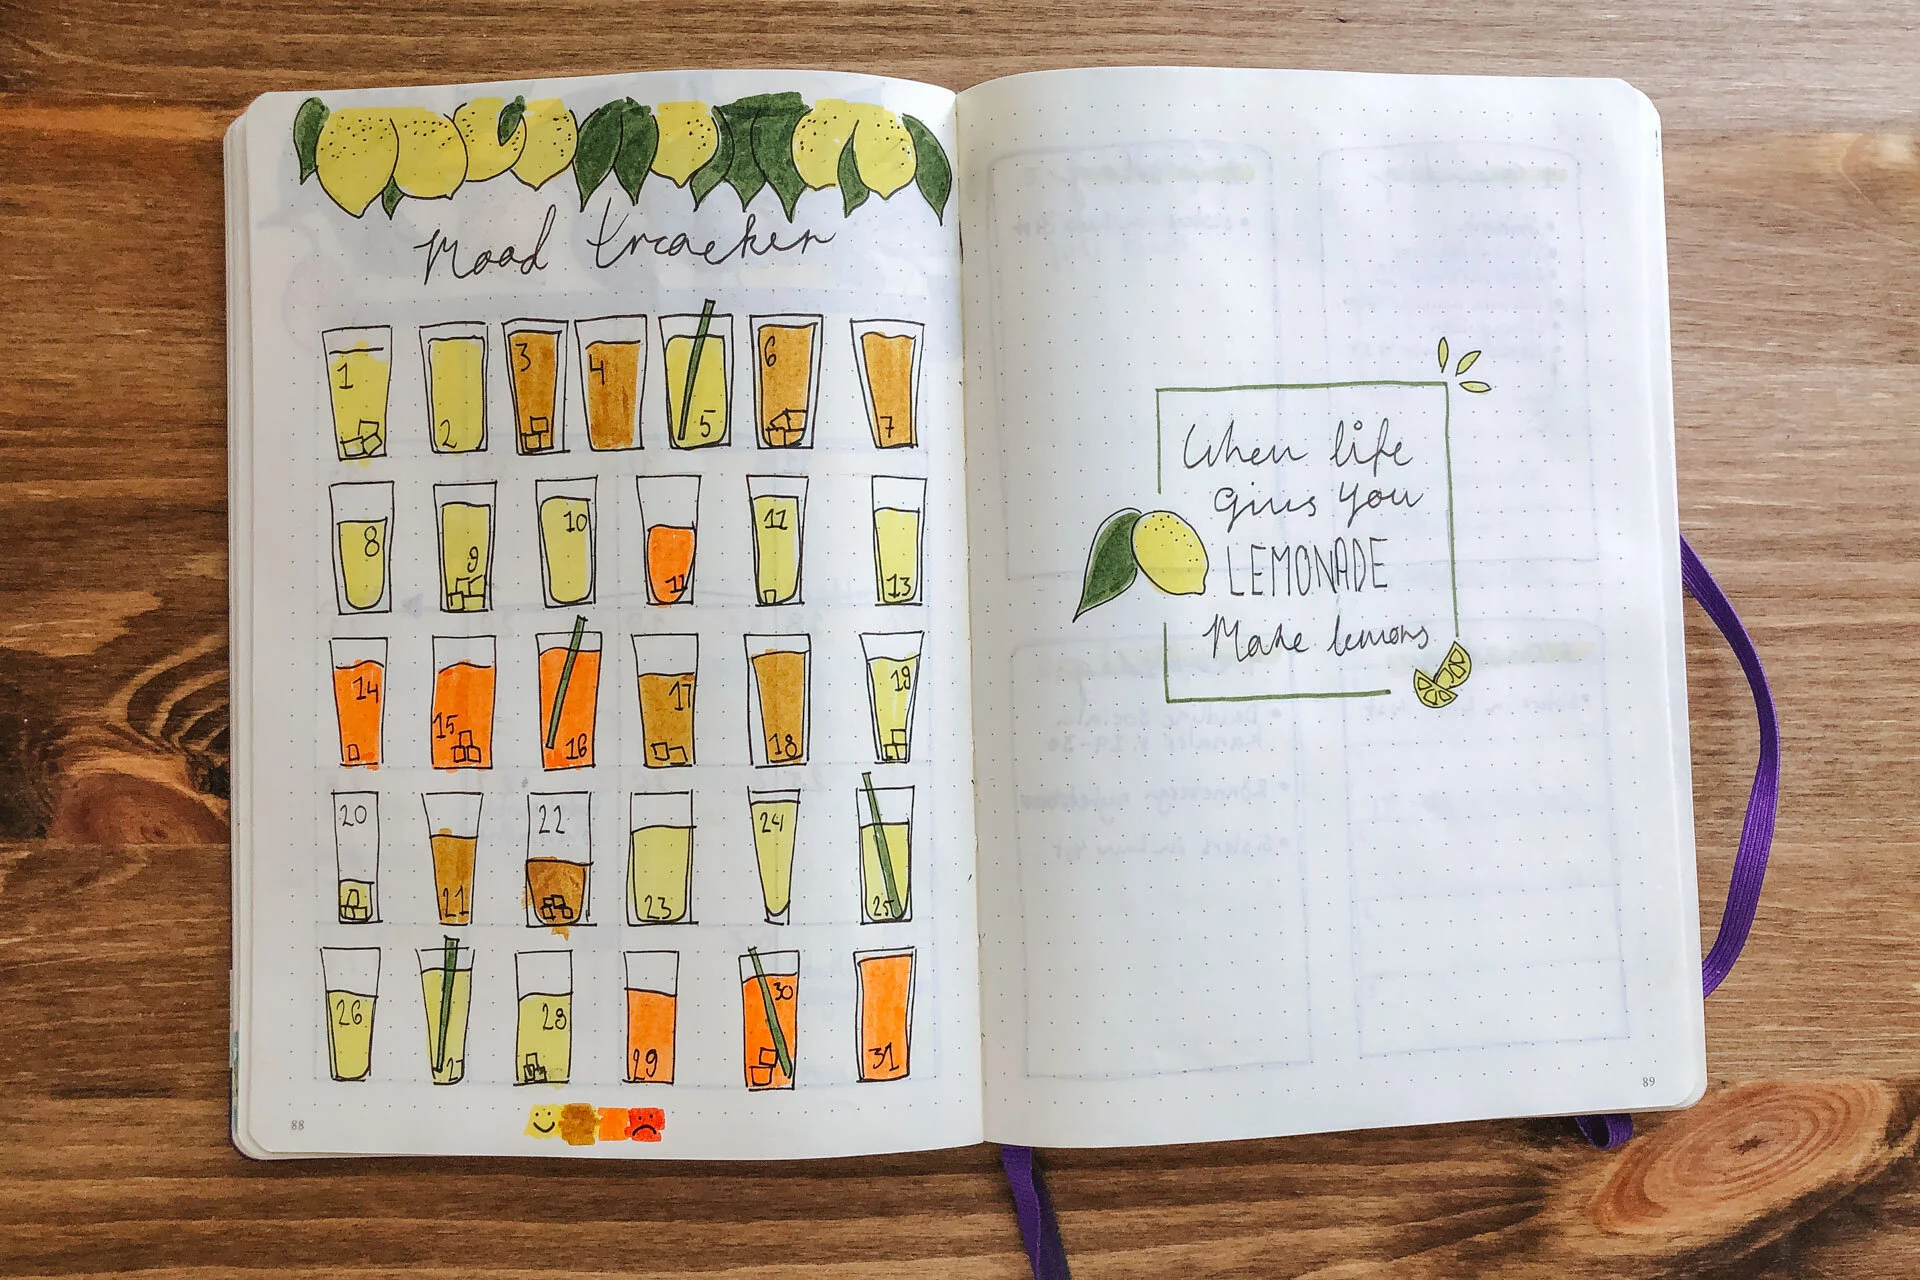 Mood tracker
1 2 3 4 5 6 7
8 9 10 11 11 13
14 15 16 17 18 19
20 21 22 23 24 25
26 27 28 29 30 31
88
When life
gives you
LEMONADE
Make lemons
89